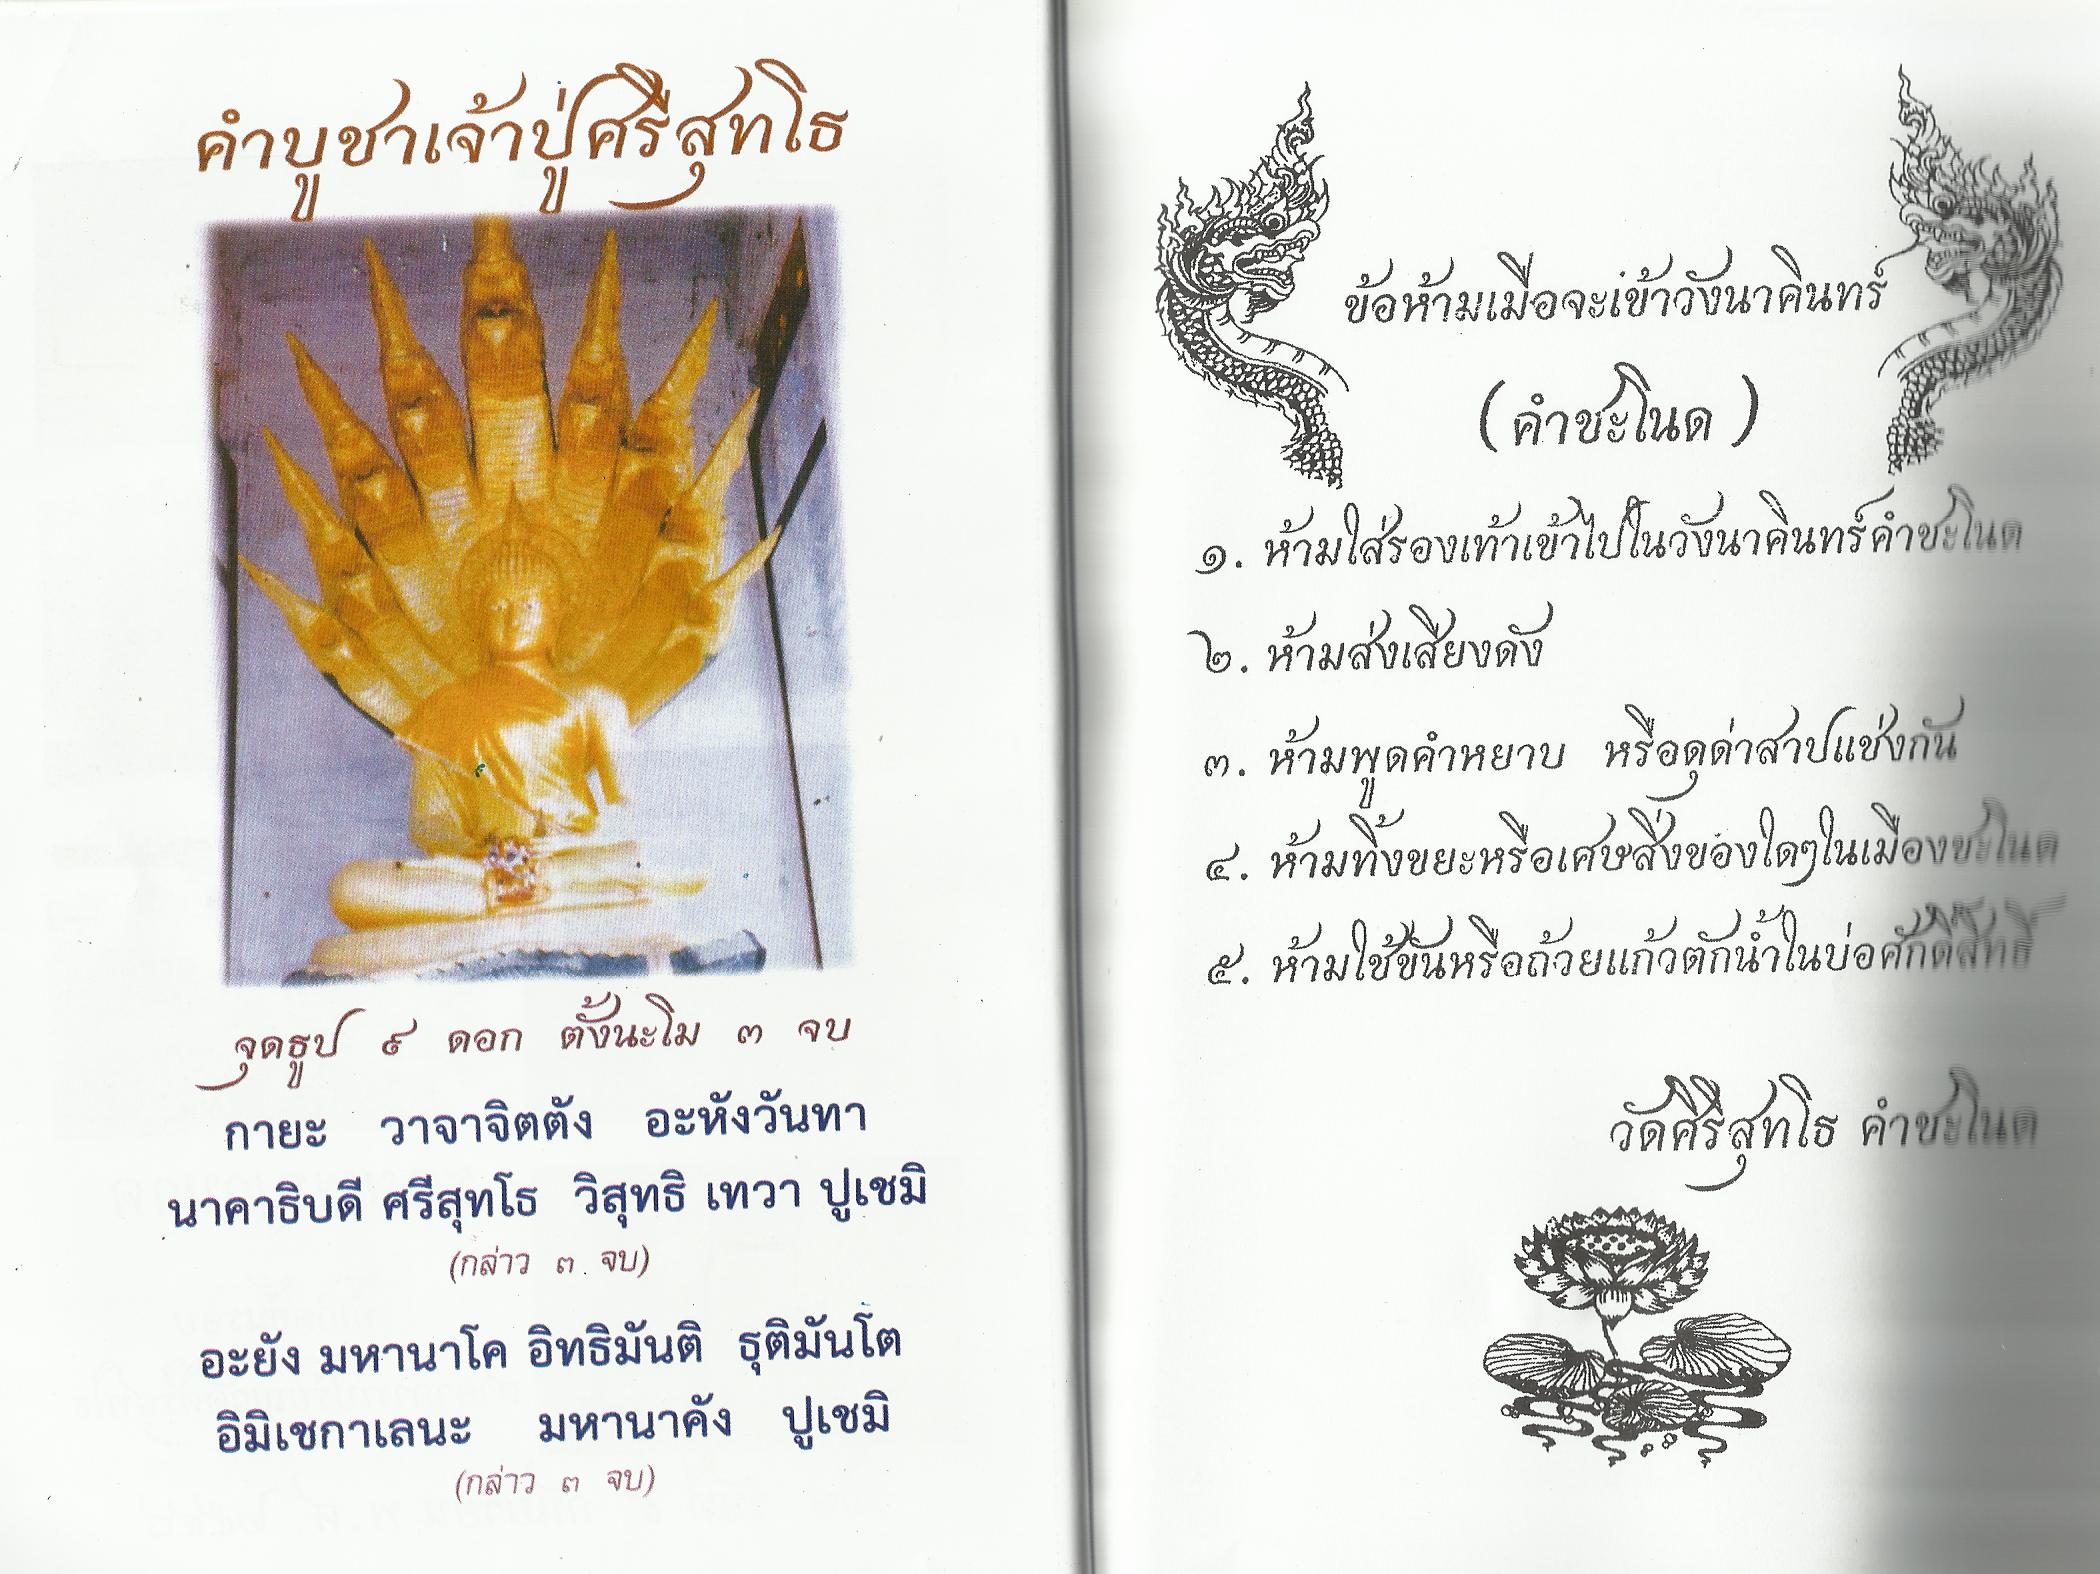 คำบูชาเจ้าปู่ศรีสุทโธ
จุดธูป ๙ ดอก ตั้งนะโม ๓ จบ
กายะ วาจาจิตตัง อะหังวันทา
นาคาธิบดี ศรีสุทโธ วิสุทธิ เทวา ปูเชมิ
(กล่าว ๓ จบ)
อะยัง มหานาโค อิทธิมันติ ธุติมันโต
อิมิเชกาเลนะ มหานาคัง ปูเชมิ
(กล่าว ๓ จบ)
ข้อห้ามเมื่อจะเข้าวังนาคินทร์
(คำชะโนด)
๑. ห้ามใส่รองเท้าเข้าไปในวังนาคินทร์คำชะโนด
๒. ห้ามส่งเสียงดัง
๓. ห้ามพูดคำหยาบ หรือดุด่าสาปแช่งกัน
๔. ห้ามทิ้งขยะหรือเศษสิ่งของใดๆในเมืองชะโนด
๕. ห้ามใช้ขันหรือถ้วยแก้วตักน้ำในบ่อศักดิ์สิทธิ์
วัดศิริสุทโธ คำชะโนด